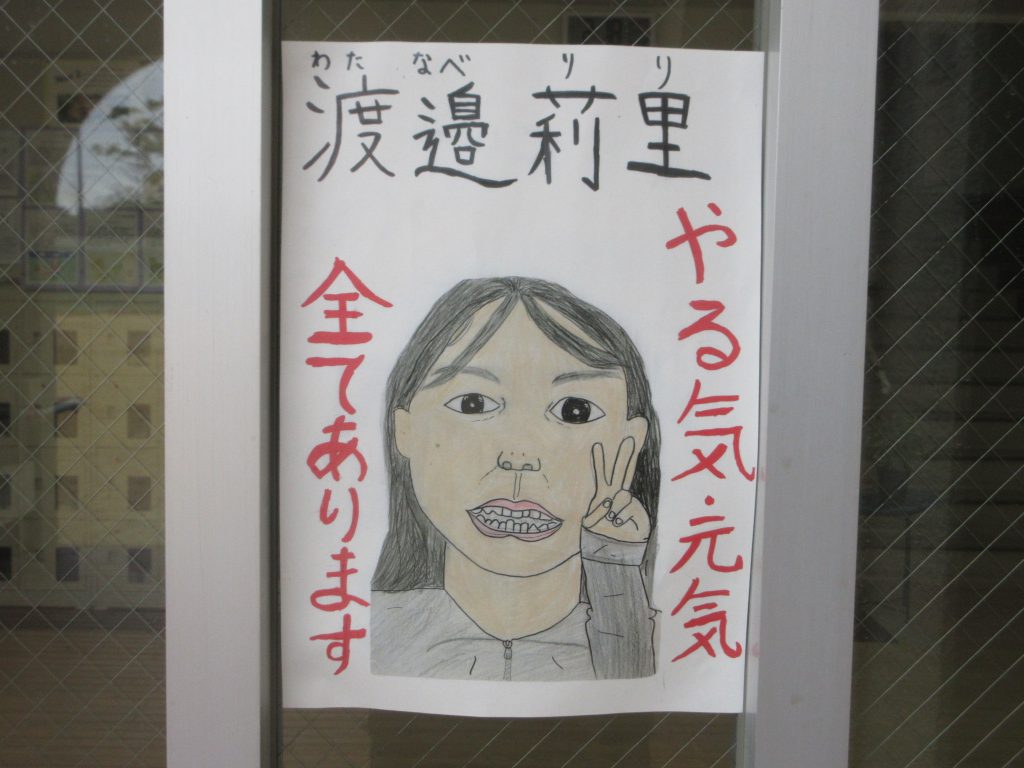 わた なべ り り
渡邉莉里
やる気・元気
全てあります